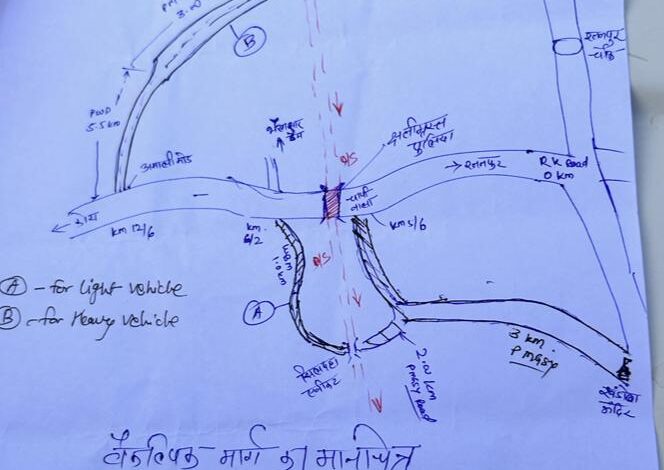 3.00
B
PWD
5.5 km
अमाली मोड़
रतनपुर
डेम
क्षतिग्रस्त
पुलिया
O/S
चापी
नाला
→ रतनपुर
R.K. Road
0 km
km 12/6
km.
6/2
km 5/6
WBM
1.0 km
O/S
A
A - for Light vehicle
B - for Heavy vehicle
2.00 km
PMGSY Road
3 km.
PMGSY
खंडोबा
मंदिर
वैकल्पिक मार्ग का मानचित्र